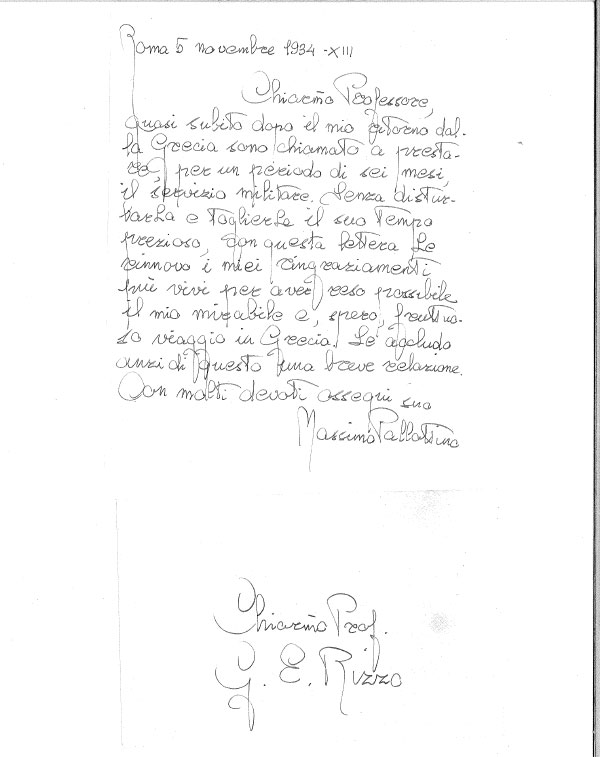 Roma 5 novembre 1934-XIII
Chiarmo Professore,
quasi subito dopo il mio ritorno dal-
la Grecia sono chiamato a presta-
re, per un periodo di sei mesi,
il servizio militare. Senza distur-
barLa e toglierLe il suo tempo
prezioso, con questa lettera Le
rinnovo i miei ringraziamenti
più vivi per aver reso possibile
il mio mirabile e, spero, fruttuo-
so viaggio in Grecia. Le accludo
anzi di questo una breve relazione.
Con molti devoti ossequi suo
Massimo Pallottino
Chiarmo Prof.
G. E. Rizzo